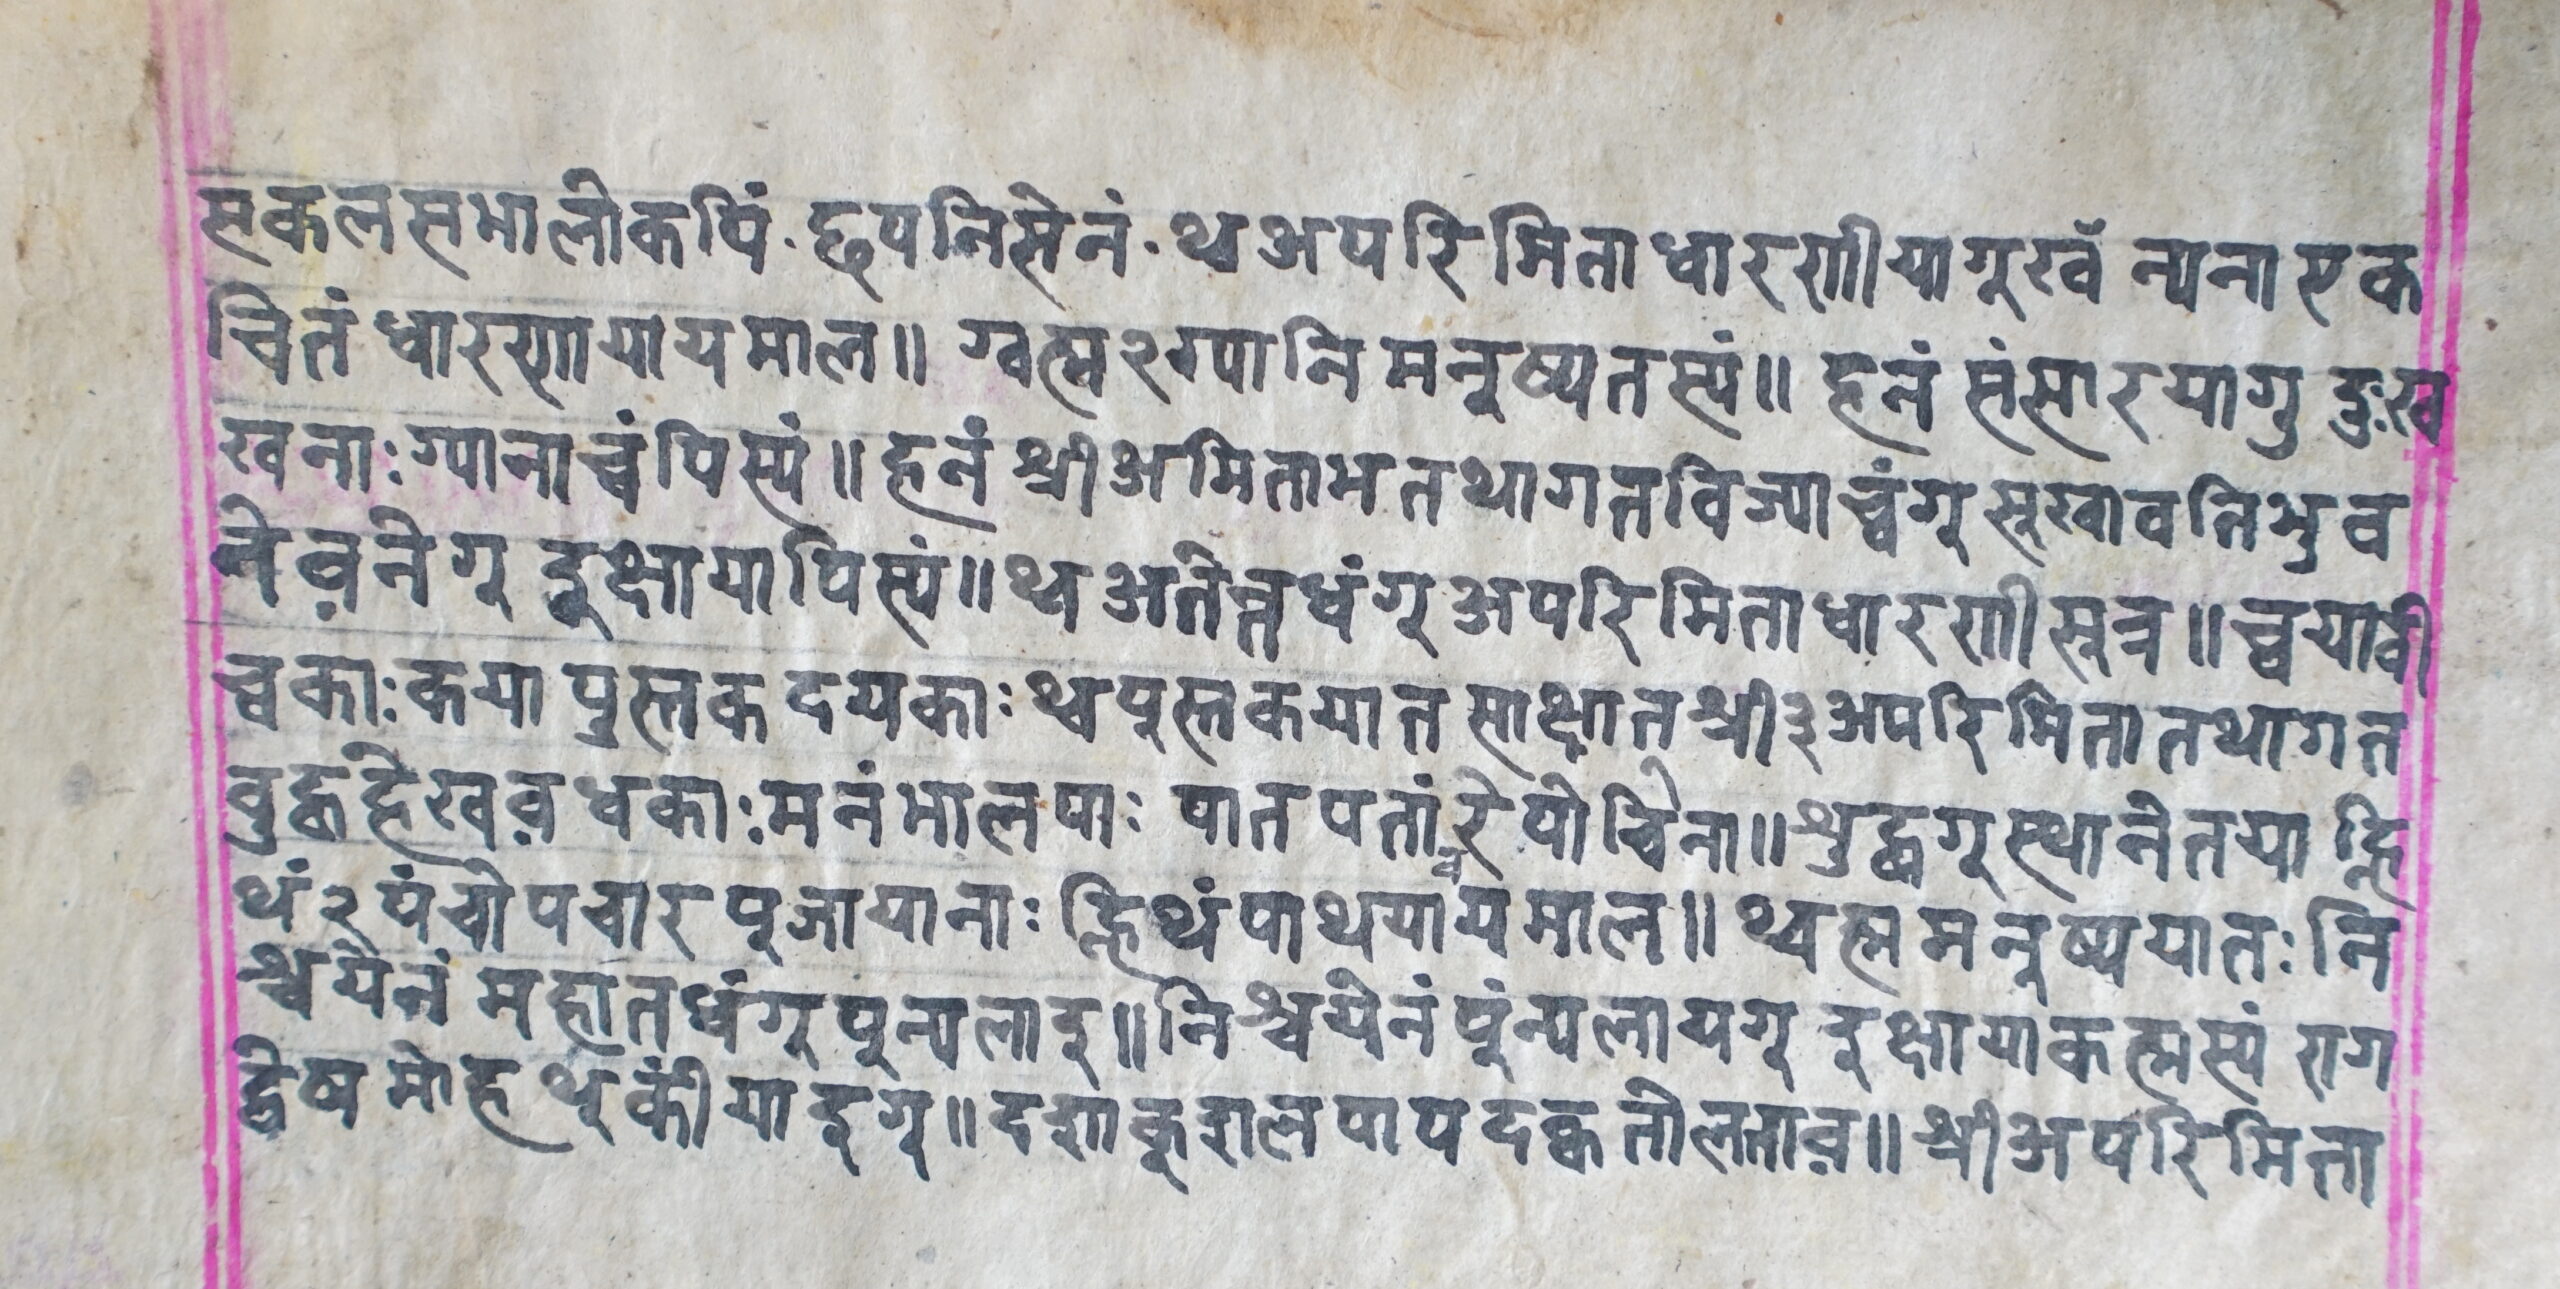 सकल सभालोकपिं · छपनिसेनं · थ्व अपरिमिता धारणीयागु खँ न्यना एक
चितं धारणा यायमाल॥ ग्वह्म २ ग्यानि मनुष्यतस्यं॥ हनं संसारयागु दुःख
खनाः ग्याना च्वंपिस्यं॥ हनं श्री अमिताभ तथागत विज्याच्वंगु सुखावति भुव
ने व़नेगु इक्षा यापिस्यं॥ थ्व अतेन्तधंगु अपरिमिता धारणी सुत्र॥ च्वयावी
च्वकाः कया पुस्तक दयकाः थ्व पुस्तकयात साक्षात श्री ३ अपरिमिता तथागत
वुद्ध हे खव़ धकाः मनं भालपाः पात पतांन्रे पोचिना॥ शुद्धगु स्थाने तया ह्नि
थं २ पंचोपचार पुजा यानाः ह्निथं पाथ यायमाल॥ थ्वह्म मनुष्ययातः नि
श्चयेनं महातधंगु पुन्य लाइ॥ निश्चयेनं पुंन्य लायगु इक्षा याकह्मस्यं राग
द्वेष मोह थुकीं याइगु॥ दश कुशल पाप दक्व तोलताव़॥ श्री अपरिमिता